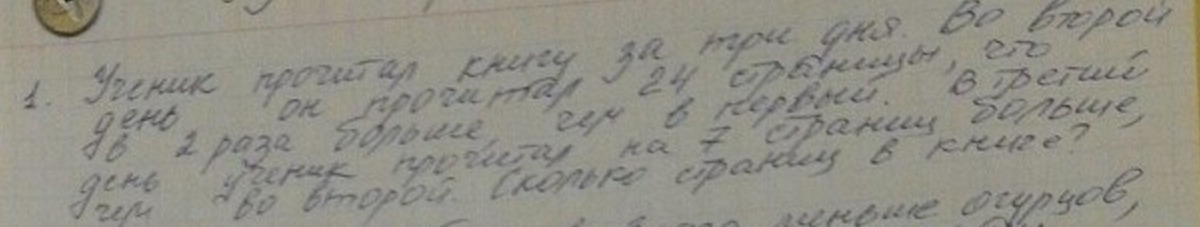 1. Ученик прочитал книгу за три дня. Во второй
день он прочитал 24 страницы, что
в 2 раза больше, чем в первый. В третий
день ученик прочитал на 7 страниц больше,
чем во второй. Сколько страниц в книге?
меньше огурцов,